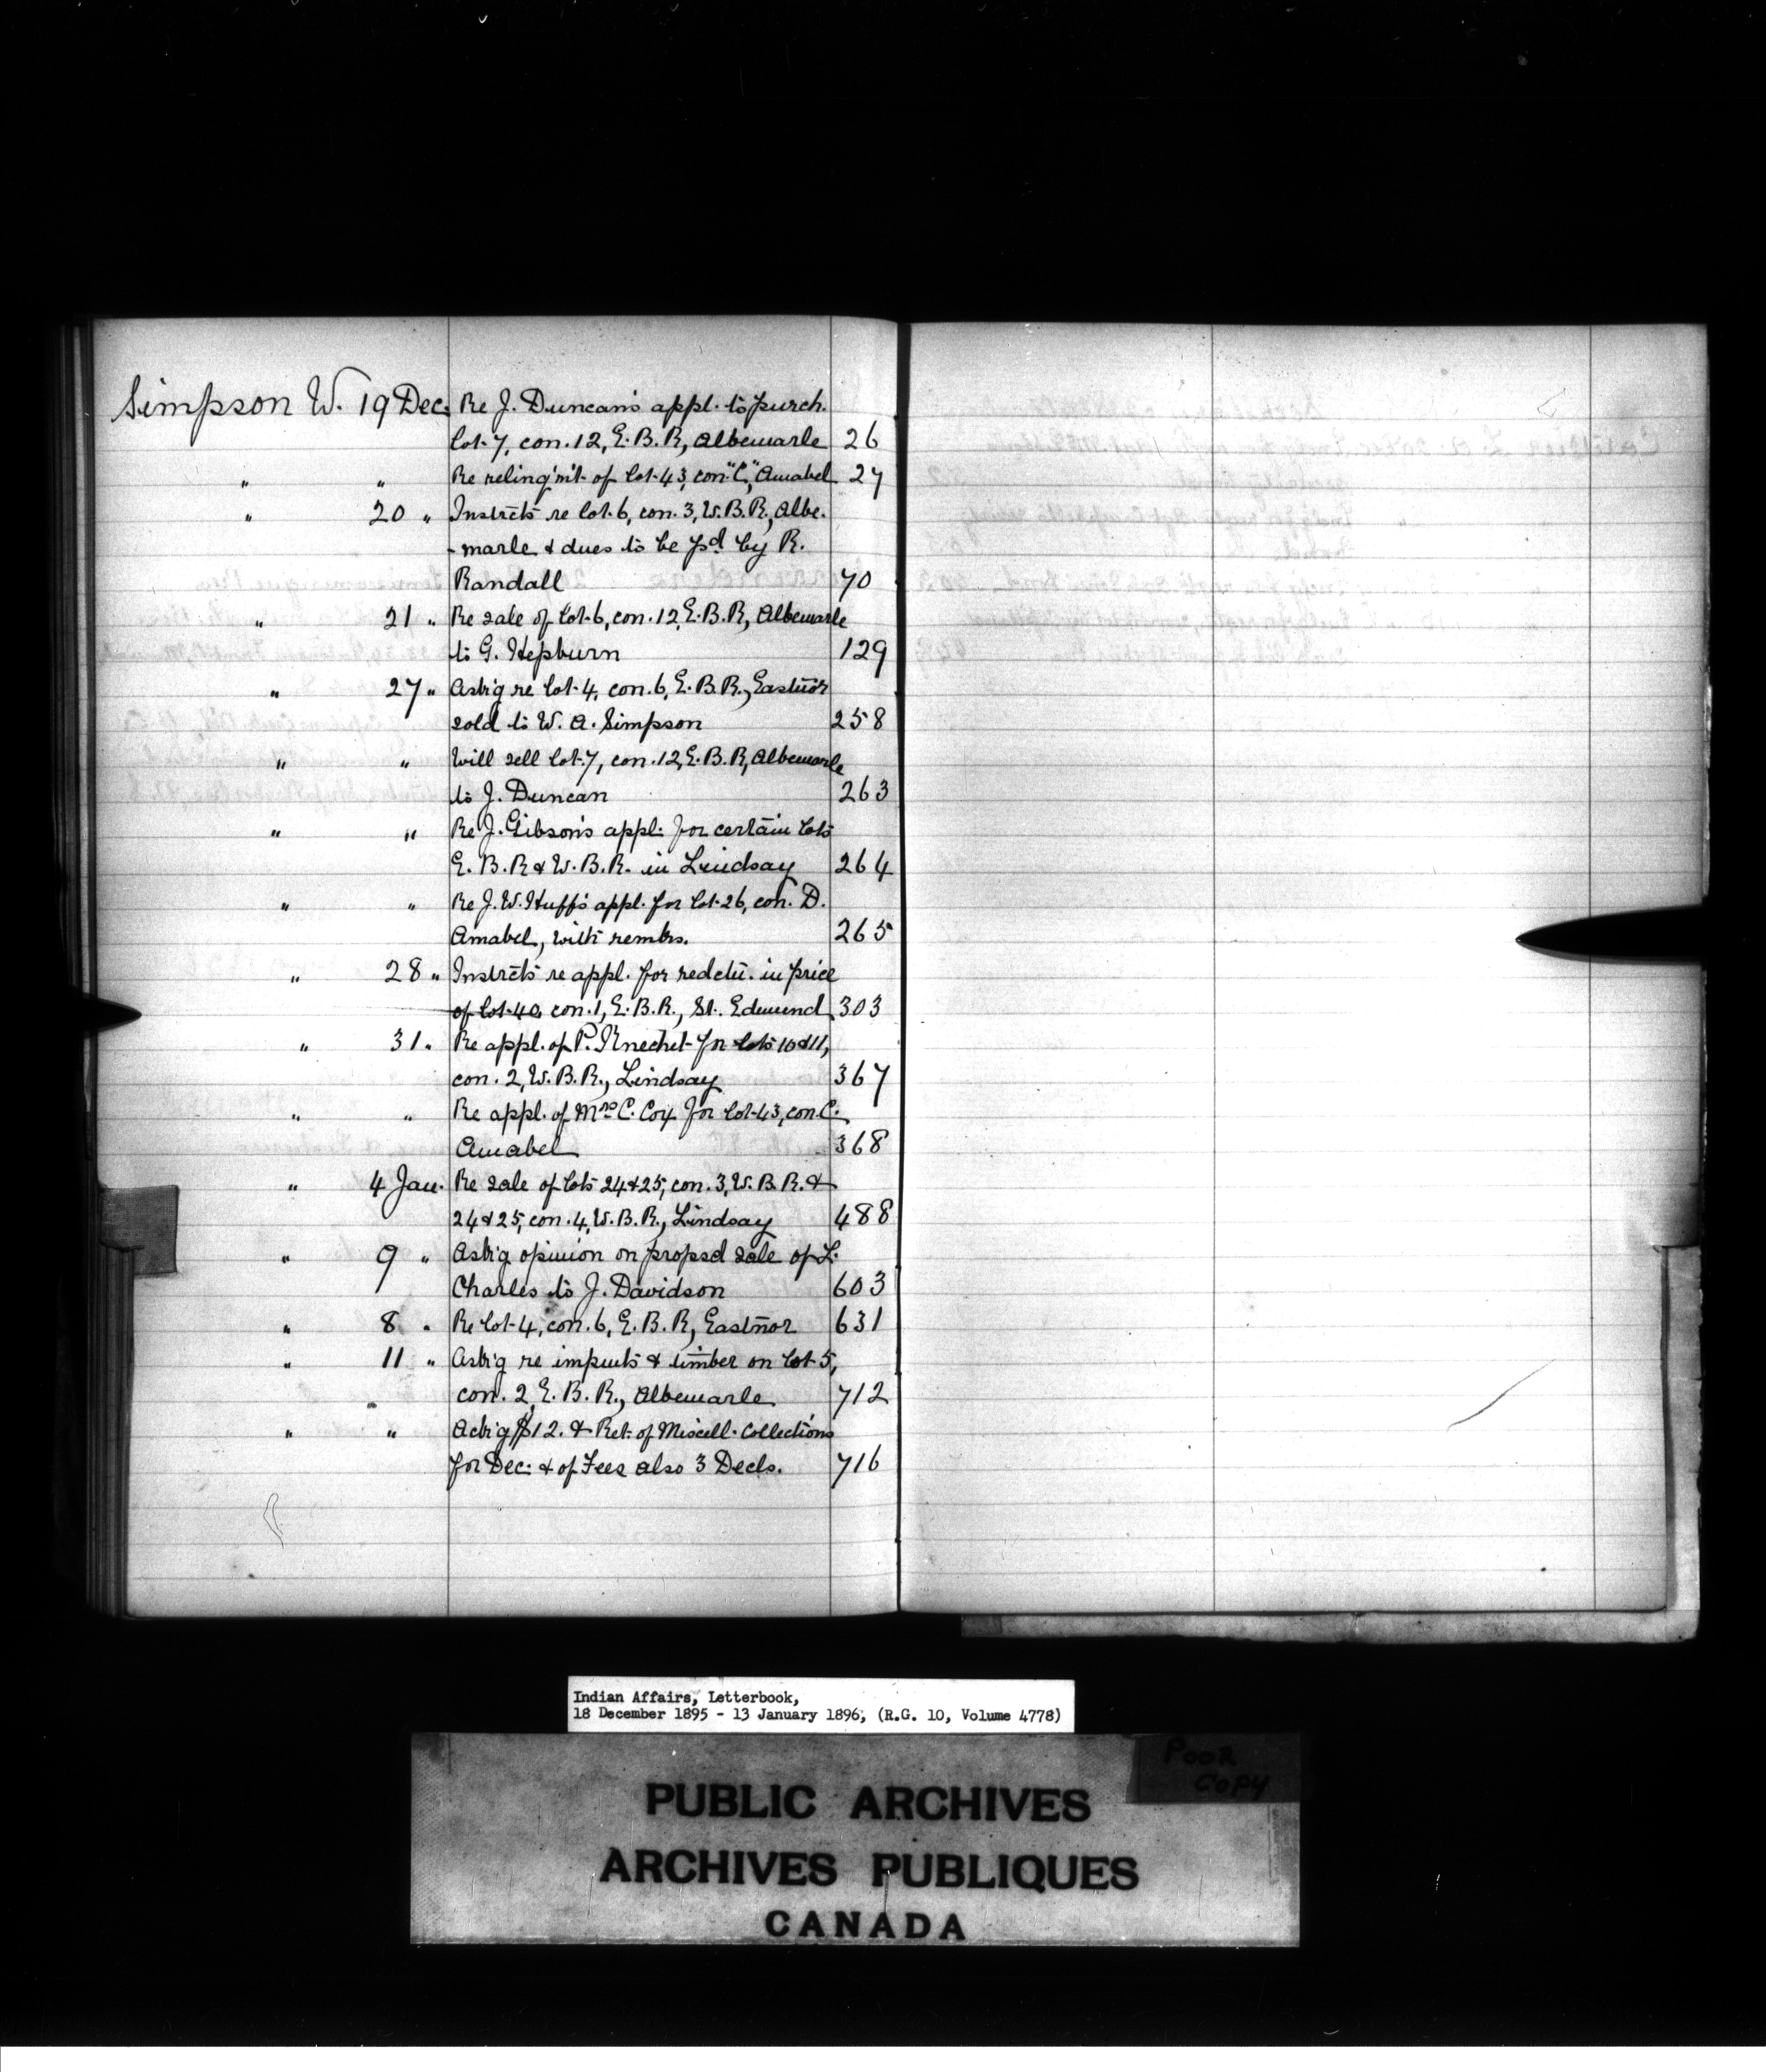 Simpson W. 19 Dec. Re J. Duncan's appl. to purch.
lot 7, con. 12, E.B.R, Albemarle 26
" " Re relinq'm't of lot 43, con. "C", Amabel 27
" 20 " Instrcts re lot 6, con. 3, W.B.R., Albe-
-marle & dues to be pd by R.
Randall 70
" 21 " Re sale of lot 6, con. 12, E.B.R, Albemarle
to G. Hepburn 129
" 27 " Ask'g re lot 4, con. 6, E.B.R., Eastnor
sold to W. A. Simpson 258
" " Will sell lot 7, con. 12, E.B.R, Albemarle
to J. Duncan 263
" " Re J. Gibson's appl. for certain lots
E.B.R & W.B.R. in Lindsay 264
" " Re J. W. Huff's appl. for lot 26, con. D.
Amabel, with remks. 265
" 28 " Instrcts re appl. for redctn. in price
of lot 40, con. 1, E.B.R., St. Edmund 303
" 31 " Re appl. of P. Knechet for lots 10 & 11,
con. 2, W.B.R., Lindsay 367
" " Re appl. of Mrs C. Cox for lot 43, con. C.
Amabel 368
" 4 Jan. Re sale of lots 24 & 25, con. 3, W.B.R. &
24 & 25, con. 4, W.B.R., Lindsay 488
" 9 " Ask'g opinion on propsd sale of L.
Charles to J. Davidson 603
" 8 " Re lot 4, con. 6, E.B.R, Eastnor 631
" 11 " Ask'g re impmts & timber on lot 5,
con. 2, E.B.R., Albemarle 712
" " Ackg $12. & Ret. of Miscell. Collections
for Dec. & of Fees also 3 Decls. 716
Indian Affairs, Letterbook,
18 December 1895 - 13 January 1896, (R.G. 10, Volume 4778)
POOR
COPY
PUBLIC ARCHIVES
ARCHIVES PUBLIQUES
CANADA